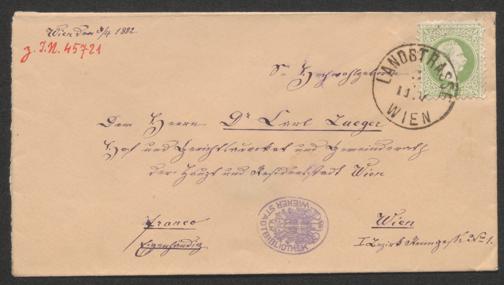 Wien den 3/4 1882.
z. I.N. 45721
Sr Hochwohlgeboren
LANDSTRASSE
WIEN
Dem Herrn Dr Carl Lueger
Hof und Gerichtsadvokat und Gemeinderath
der Haupt und Residenzstadt Wien
WIENER STADTBIBLIOTHEK
Franco
Eigenhändig
Wien
I Bezirk No 1.